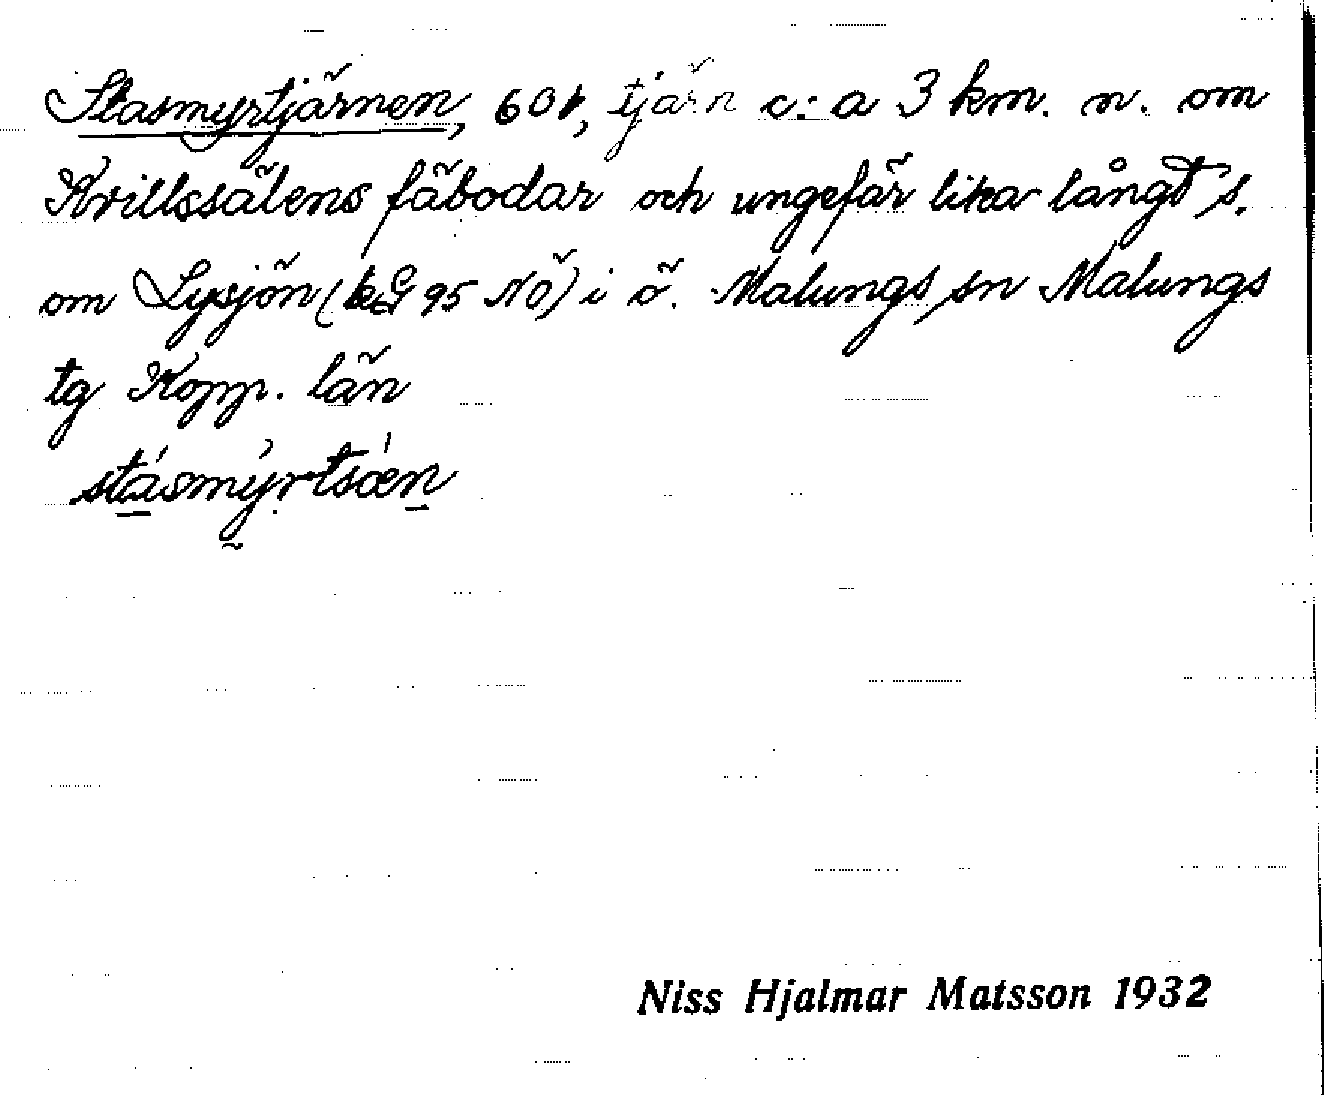 Stasmyrtjärnen, 601, tjärn c:a 3 km. n. om
Krillssälens fäbodar och ungefär lika långt s.
om Lysjön (kG 95 NÖ) i ö. Malungs sn Malungs
tg Kopp. län
stásmýrtsǽn
Niss Hjalmar Matsson 1932